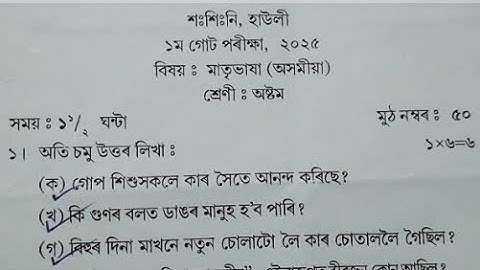 শঃশিঃনি, হাউলী
১ম গোট পৰীক্ষা, ২০২৫
বিষয় : মাতৃভাষা (অসমীয়া)
শ্ৰেণী : অষ্টম
সময় : ১ ১/২ ঘন্টা মুঠ নম্বৰ : ৫০
১। অতি চমু উত্তৰ লিখা : ১×৬=৬
(ক) গোপ শিশুসকলে কাৰ সৈতে আনন্দ কৰিছে?
(খ) কি গুণৰ বলত ডাঙৰ মানুহ হ'ব পাৰি?
(গ) বিহুৰ দিনা মাখনে নতুন চোলাটো লৈ কাৰ চোতাললৈ গৈছিল?